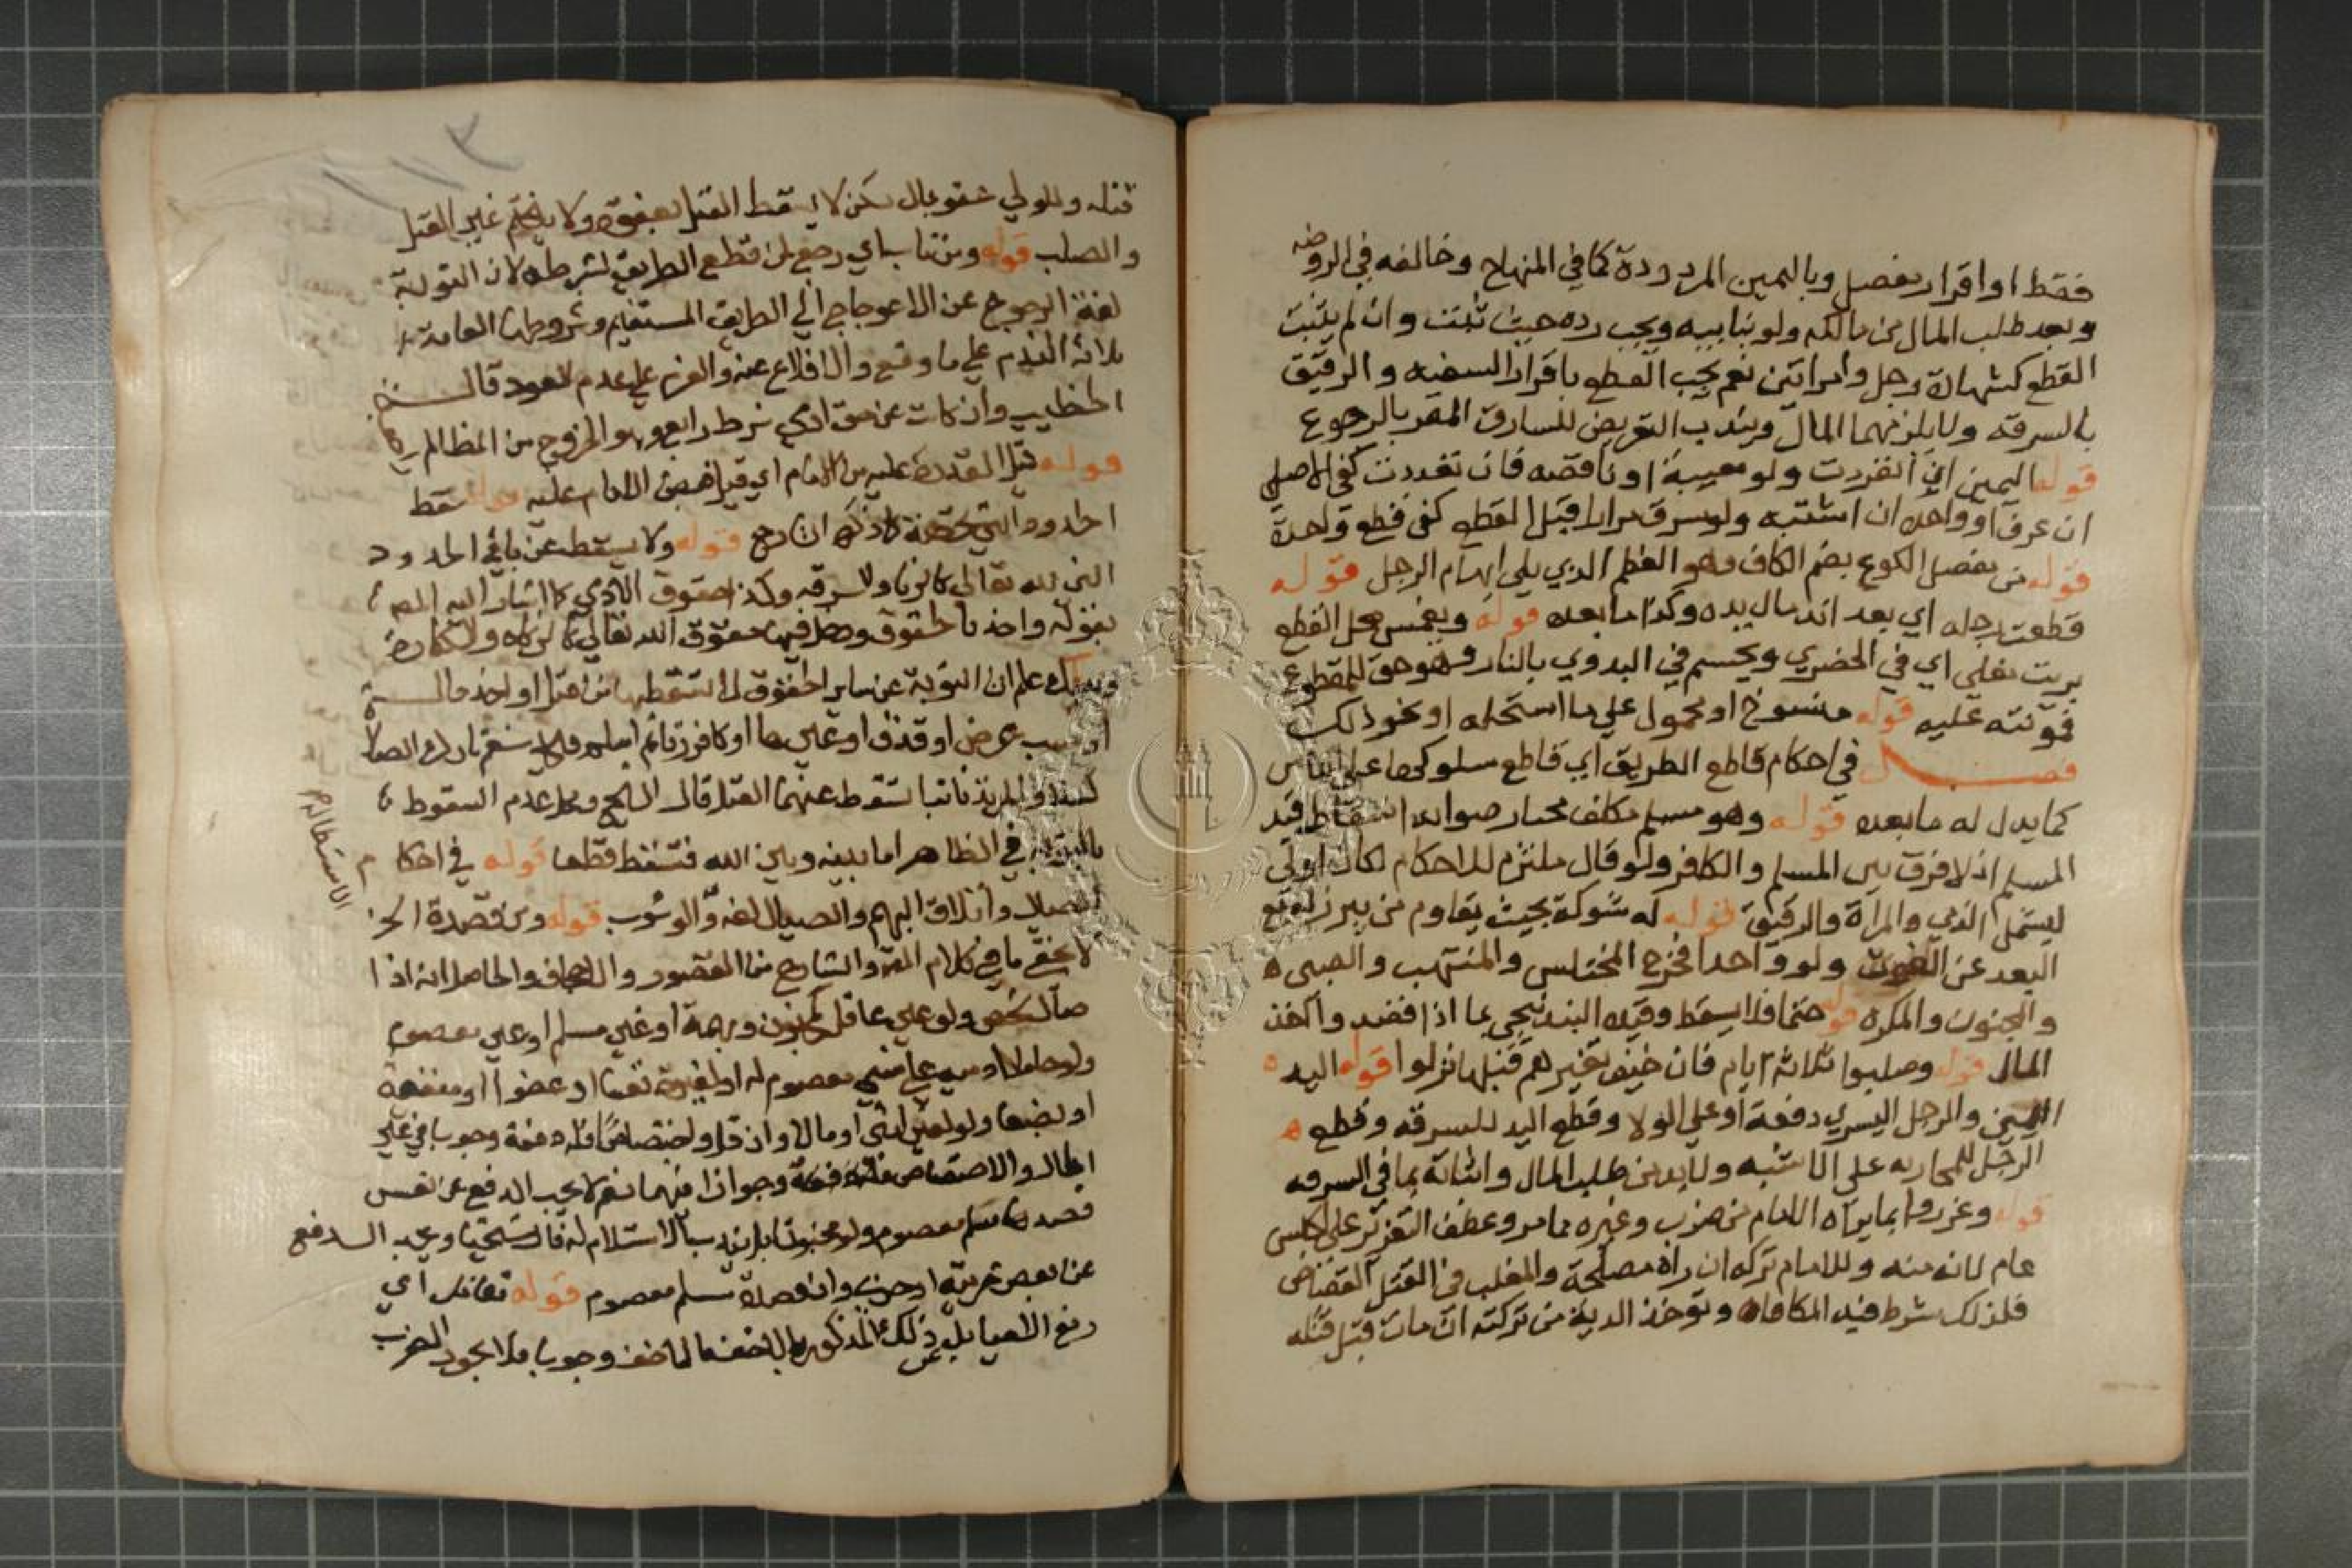 فقط او اقرار يفصل وباليمين المردودة كما في المنهاج وخالفه في الروضه
وبعد طلب المال من مالكه ولو بنايبه ويجب رده حيث ثبت وان لم يثبت
القطع كشهادة رجل وامراتين نعم يجب القطع باقرار السفيه والرقيق
بالسرقه ولا يلزمهما المال ويندب التعريض للسارق المقر بالرجوع
قوله اليمين اي انفردت ولو معيبة او ناقصه فان تعددت كفي الاصلي
ان عرف او واحده ان اشتبه ولو سرق مرارا قبل القطع كفي قطع واحدة
قوله من مفصل الكوع بضم الكاف وهو العظم الذي يلي ابهام الرجل قوله
قطعت رجله اي بعد اندمال يده وكذا ما بعده قوله ويغمس محل القطع
بزيت مغلي اي في الحضري ويحسم في البدوي بالنار وهو حق للمقطوع
فمونته عليه قوله منسوخ او محمول علي ما استحله او نحو ذلك
فصل في احكام قاطع الطريق اي قاطع سلوكها علي الناس
كما يدل له ما بعده قوله وهو مسلم مكلف مختار صوابه اسقاط قيد
المسلم اذ لا فرق بين المسلم والكافر ولو قال ملتزم للاحكام لكان اولي
ليشمل الذمي والمراة والرقيق قوله له شوكة بحيث يقاوم من يبرز له مع
البعد عن الغوث ولو واحدا فخرج المختلس والمنتهب والصبي
والمجنون والمكره قوله حتما فلا يسقط وقيده البندنيجي بما اذا قصد واخذ
المال قوله وصلبوا ثلاثة ايام فان خيف تغيرهم قبلها نزلوا قوله اليد
اليمين والرجل اليسري دفعة او علي الولا وقطع اليد للسرقه وقطع
الرجل للمحاربه علي الاشبه ولا بد من طلب المال واثباته بما في السرقه
قوله وعزروا بما يراه الامام من ضرب وغيره مما مر وعطف التعزير علي الحبس
عام لانه منه وللامام تركه ان راه مصلحة والمغلب في القتل القصاص
فلذلك شرط فيه المكافاة وتوخذ الدية من تركته ان مات قبل قتله
قتله وللولي عفو بمال لكن لا يسقط القتل بعفوه ولا يتحتم غير القتل
والصلب قوله ومن تاب اي رجع لمن قطع الطريق بشرطه لان التوبة
لغة الرجوع عن الاعوجاج الي الطريق المستقيم وشروطها العامة
ثلاثة الندم علي ما وقع والاقلاع عنه والعزم علي عدم العود قال الشيخ
الخطيب وان كانت عن حق ادمي شرط رابع وهو الخروج من المظالم
قوله قبل القدرة عليه من الامام اي قبل قبض الامام عليه قوله سقط
الحدود التي تختصه كما ذكره الشارح قوله ولا يسقط عن باقي الحدود
التي لله تعالي كالزنا والسرقه وكذا حقوق الادمي كما اشار اليه المص
بقوله واخذ بالحقوق ودخل فيها حقوق الله تعالي كالزكاه والكفارة
وبذلك علم ان التوبة عن ساير الحقوق لا تسقطها من قتل او اخذ مال
او سب عرض او قذف او غيرها او كافر زنا ثم اسلم نعم تارك الصلاة
كسلا والمرتد تابا سقط عنهما القتل قال ومحل عدم السقوط
بالتوبة في الظاهر اما بينه وبين الله فتسقط قطعا قوله في احكام
الصيال واتلاف البهم والصيال لغة الوثوب قوله ومن قصده الخ
لا يخفي ما في كلام المص والشارح من القصور والاجحاف والحاصل انه اذا
صال شخص ولو علي عاقل كمجنون وبهمة او غير مسلم او غير معصوم
ولو حاملا او علي شي معصوم له او لغيره نفسا او عضوا او منفعة
او بضعا ولو لغير انثي او مالا وان قل او اختصاصا فله دفعه وجوبا في غير
المال والاختصاص وجوازا فيهما نعم لا يجب الدفع عن نفس
قصدها مسلم معصوم ولو مجنونا بل يندب الاستسلام له ويجب الدفع
عن بعض قوله تقاتل اي
دفع الصيال المذكور بالاخف فالاخف وجوبا فلا يجوز الضرب